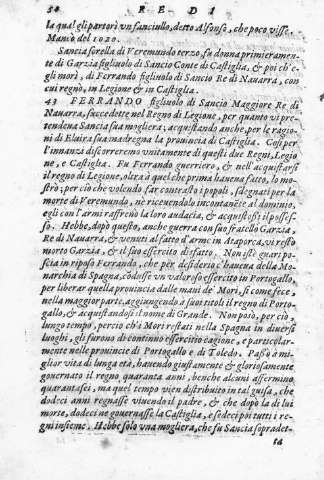 58 R E D I
la qual gli partorì vn fanciullo, detto Alfonso, che poco visse.
Manìò del 1020.
Sancia sorella di Veremundo terzo, fù donna primieramen-
te di Garzia figliuolo di Sancio Conte di Castiglia, & poi ch'e-
gli morì, di Ferrando figliuolo di Sancio Re di Nauarra, con
cui regnò, in Legione & in Castiglia.
43 FERRANDO figliuolo di Sancio Maggiore Re di
Nauarra, succedette nel Regno di Legione, per quanto vi pre-
tendeua Sancia sua mogliera; acquistando anche, per le ragio-
ni di Eluira sua madre, la prouincia di Castiglia. Così per
l'innanzi discorreremo vnitamente di questi due Regni, Legio-
ne, e Castiglia. Fu Ferrando guerriero, & nell'acquistarsi
il regno di Legione, oltra à quel che prima haueua fatto, lo mo-
strò; perciò che volendo far contrasto i popoli, sdegnati per la
morte di Veremundo, nè riceuendolo incontanẽte al dominio,
egli con l'armi raffrenò la loro audacia, & acquistossi il posses-
so. Hebbe, dopo questo, anche guerra con suo fratello Garzia,
Re di Nauarra, & venuti al fatto d'arme in Ataporca, vi restò
morto Garzia, & il suo essercito disfatto. Non istè guari po-
scia in riposo Ferrando, che per desiderio c'haueua della Mo-
narchia di Spagna, cõdusse vn valoroso essercito in Portogallo,
per liberar quella prouincia dalle mani de' Mori, si come fece,
nella maggior parte, aggiungendo à suoi titoli il regno di Porto-
gallo, & acquistandosi il nome di Grande. Non potè, per ciò,
lungo tempo, percio ch'i Mori restati nella Spagna in diuerse
luoghi, gli furono di continuo essercitio cagione, e particolar-
mente nelle prouincie di Portogallo e di Toledo. Passò à mi-
glior vita di lunga età, hauendo giustamente & gloriosamente
gouernato il regno quaranta anni, benche alcuni affermino
quarantasei, ma quel tempo vien distribuito in tal guisa, che
dodeci anni regnasse viuendo il padre, & che dopo la di lui
morte, dodeci ne gouernasse la Castiglia, e sedeci poi tutti i re-
gni insieme. Hebbe solo vna mogliera, che fu Sancia sopradet-
ta